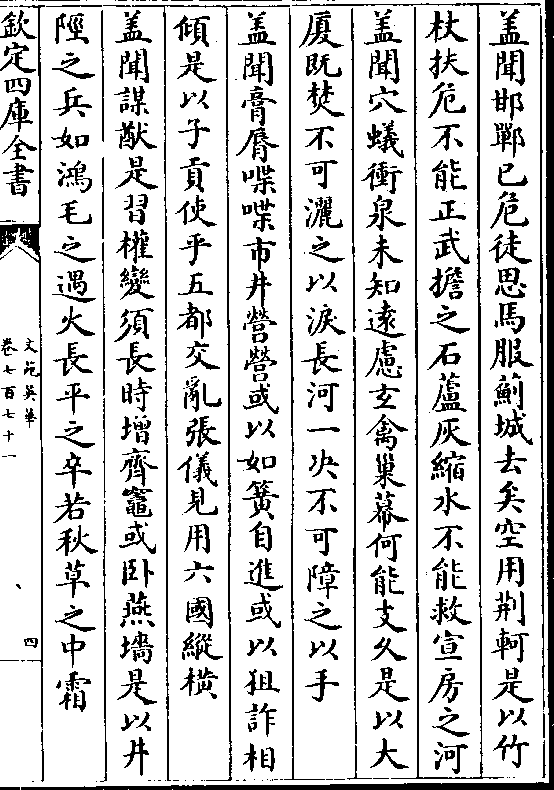 蓋聞邯鄲已危徒思馬服薊城去矣空用荆軻是以竹
杖扶危不能正武擔之石蘆灰縮水不能救宣房之河
蓋聞穴蟻衝泉未知遠慮玄禽巢幕何能支久是以大
厦既焚不可灑之以淚長河一决不可障之以手
蓋聞膏脣喋喋市井營營或以如簧自進或以狙詐相
傾是以子貢使乎五都交亂張儀見用六國縱橫
蓋聞謀猷是習權變須長時增齊竈或卧燕墻是以井
陘之兵如鴻毛之遇火長平之卒若秋草之中霜
欽定四庫全書
文苑英華
卷七百七十一
四